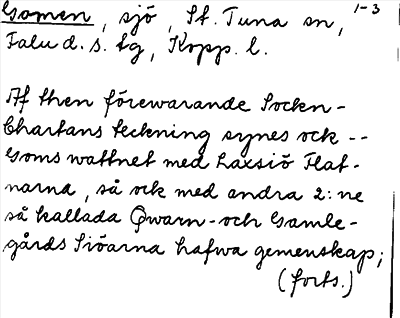 Gomen, sjö, St. Tuna sn, 1-3
Falu d. s. tg, Kopp. l.
Af then förewarande Sockn-
Chartans teckning synes ock --
Goms wattnet med Laxsiö Flat-
narna, så ock med andra 2:ne
så kallada Qwarn- och Gamle-
gårds Siöarna hafwa gemenskap;
(forts.)